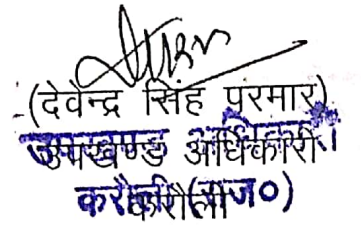 (देवेन्द्र सिंह परमार)
उपखण्ड अधिकारी
करौली (राज०)